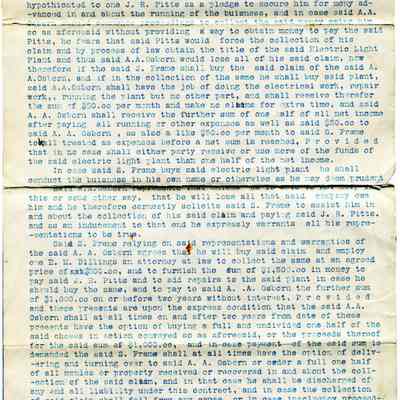 hypothecated to one J. R. Pitts as a pledge to secure him for money ad-
-vanced in and about the running of the buisness, and in case said A.A.
so as aforesaid without providing a way to obtain money to pay the said
Pitts, he fears that said Pitts would force the collection of his
claim and by process of law obtain the title of the said Electric Light
Plant and thus said A.A.Osborn would lose all of his said claim, now
therefore if the said J. Frame shall buy the said claim of the said A.
A.Osborn, and if in the collection of the same he shall buy said plant,
said A.A.Osborn shall have the job of doing the electrical work, repair
work,, running the plant but no other part, and shall receive therefor
the sum of $50.oo per month and make no claims for extra time, and said
A. A. Osborn shall receive the further sum of one half of all net income
after paying all running or other expenses as well as said $50.oo to
said A. A. Osborn , as also a like $50.oo per month to said S. Frame
shall treated as expenses before a net sum is reached, P r o v i d e d
that in no case shall either party receive or use more of the funds of
the said electric light plant than one half of the net income.
In case said S. Frame buys said electric light plant he shall
conduct the buisness in his own name or otherwise as he may deem prudent
this or some other way, that he will lose all that said
him and he therefore earnestly solicits said S. Frame to assist him in
and about the collection of his said claim and paying said J. R. Pitts.
and as an indusement to that end he expressly warrants all his repre-
-sentations to be true.
Said S. Frame relying on said representations and warranties of
the said A. A. Osborn agrees that he will buy said claim and employ
one E. M. Billings an attorney at law to collect the same at an agreed
price of $200.oo, and to furnish the sum of $1,500.oo in money to
pay said J. R. Pitts and to add repairs to the said plant in case he
should buy the same, and to pay to said A. .A. Osborn the further sum
of $1,000.oo on or before two years without interest, P r o v i d e d
and these presents are upon the express condition that the said A.A.
Osborn shall at all times on and after two years from date of these
presents have the option of buying a full and undivided one half of the
said choses in action conveyed so as aforesaid, or the proceeds thereof
for the said sum of $1,000.oo, and in case payment of the said sum is
demanded the said S. Frame shall at all times have the option of deliv-
-ering and turning over to said A. A. Osborn or order a full one half
of all monies or property received or recovered in and about the coll-
-ection of the said claim, and in that case he shall be discharged of
any and all liability under this contract, and in case the collection